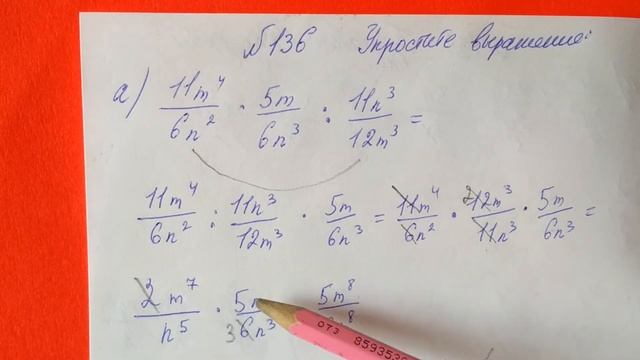 №136 Упростите выражение:
а) 11m⁴/6n² · 5m/6n³ : 11n³/12m³ =
11m⁴/6n² : 11n³/12m³ · 5m/6n³ = 11m⁴/6n² · 2 12m³/11n³ · 5m/6n³ =
2m⁷/n⁵ · 5/3 6n³ 5m⁸/⁸
073 8593535